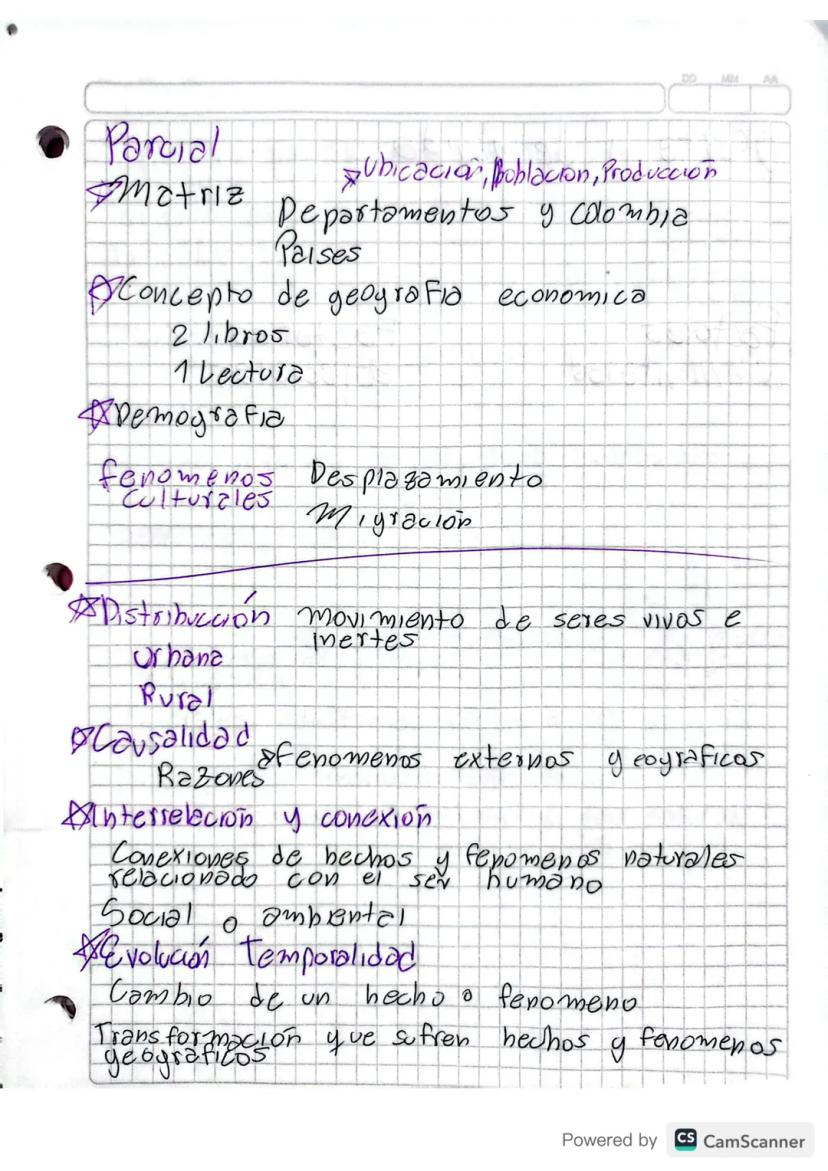 DD MM AA
Parcial
Ubicación, Población, Producción
Matriz
Departamentos y Colombia
Paises
Concepto de geografia economica
2 libros
1 Lectura
Demografia
fenomenos Desplazamiento
culturales
Migración
Distribucción movimiento de seres vivos e
inertes
Urbana
Rural
Causalidad
fenomenos externos geograficos
Razones
Interrelación y conexión
Conexiones de hechos y fenomenos naturales
relacionado con el ser humano
Social o ambiental
Evolución Temporalidad
Cambio de un hecho o fenomeno
Transformación que sufren hechos y fenomenos
geograficos
Powered by CS CamScanner